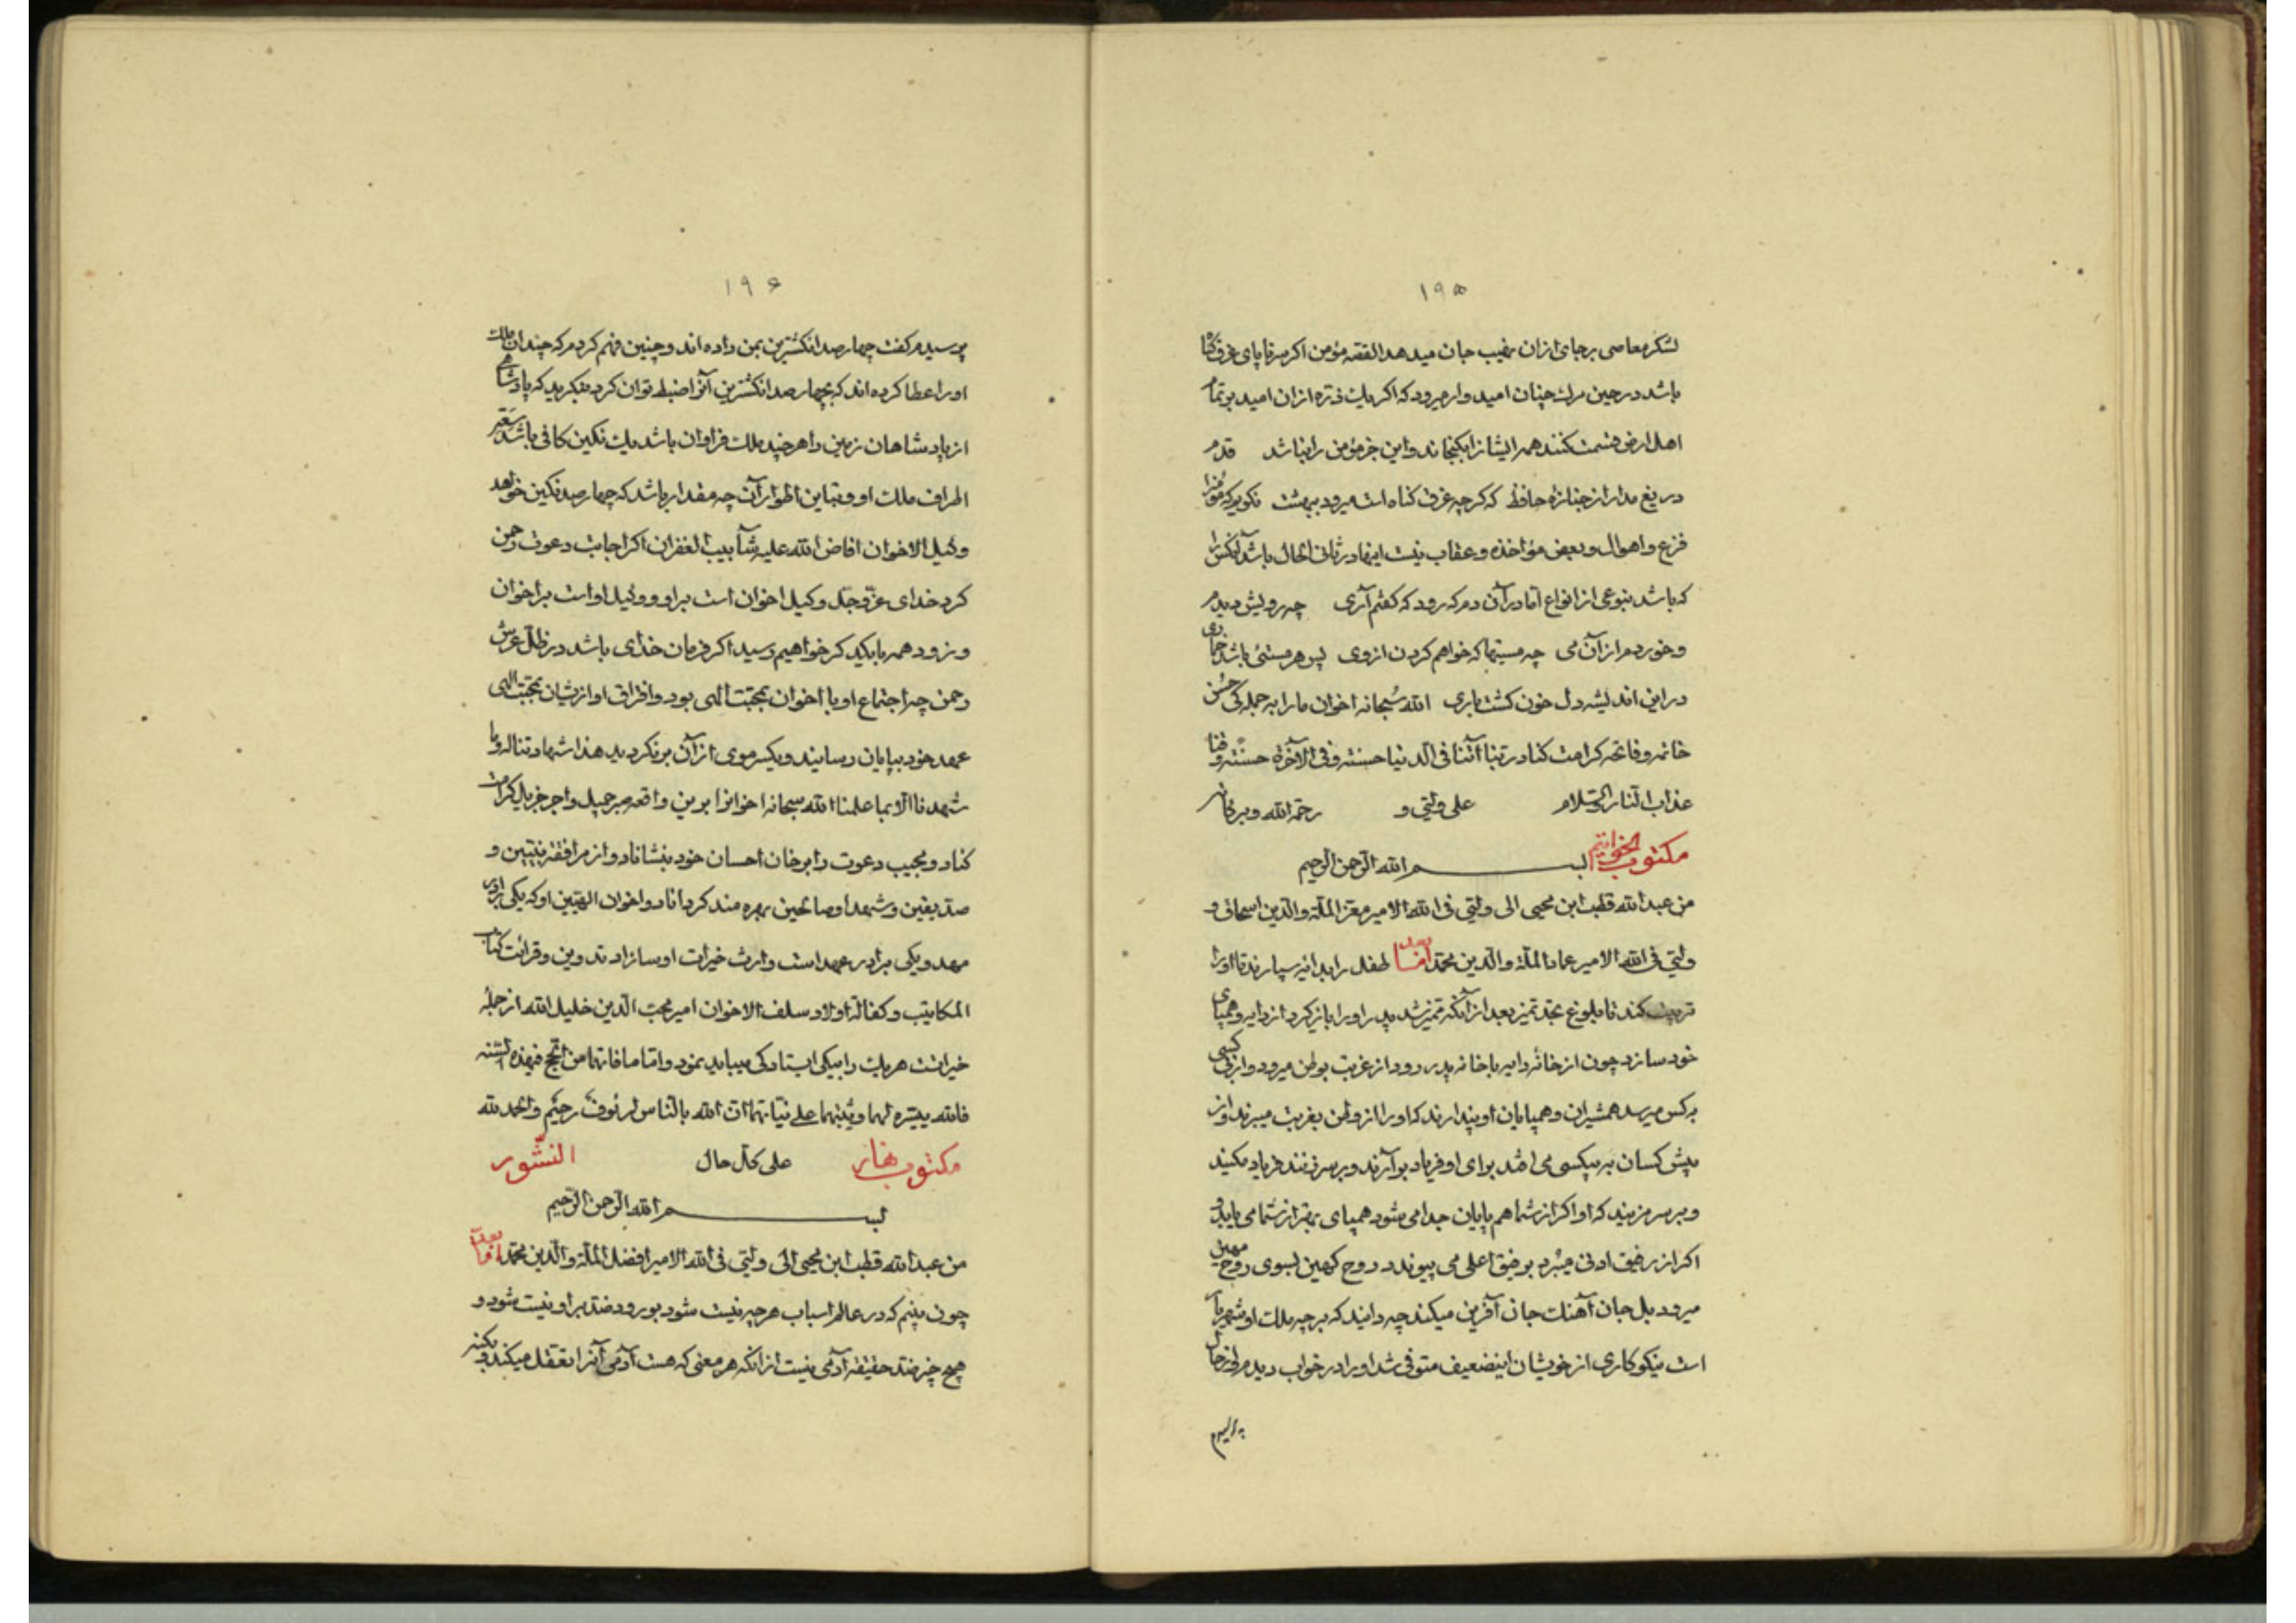 ۱۹۵
لشکر معاصی بر جای ازان نهیب جان میدهد القصه مؤمن اکر سر تا پای غرق کناه
باشد در حین مرک چنان امیدوار میرود که اکر یک ذره ازان امید بر تمام
اهل ارض قسمت کنند همه ایشانرا بکنجاند و این جز مؤمن را نباشد قدم
دریغ مدار از جنازه حافظ که کرچه غرق کناه است میرود ببهشت نکویم که مؤمنرا
فزع و اهوال و بعض مؤاخذه و عقاب نیست اینها در ثانی الحال باشد آنکس را
که باشد بنوعی از انواع اما در آن دم که رود که کفتم آری چه رویش دیدم
و خوردم از آن می چه مستیها که خواهم کردن از وی پس هر مستی باشد خماری
در این اندیشه دل خون کشت باری الله سبحانه اخوان ما را به جملکی حسن
خاتمه و فاتحه کرامت کناد ربنا آتنا فی الدنیا حسنته و فی الآخرة حسنته و قنا
عذاب النار والسلام علی ولیّی و رحمة الله و برکاته
مکتوب الخواتیم بسم الله الرحمن الرحیم
من عبد الله قطب ابن محیی الی ولیّی فی الله الامیر معز الملة والدین اسحاق و
ولیّی فی الله الامیر عماد الملة والدین محمد اما بعد طفل را بدایه سپارند تا او را
تربیت کند تا بلوغ بحد تمیز بعد از آنکه متمیز شد پدر او را باز کیرد از دایه و همپای
خود سازد چون از خانه دایه با خانه پدر رود از غربت بوطن میرود و از بی کسی
بکس میرسد همشیران و همپایان او پندارند که او را از وطن بغربت میبرند و از
پیش کسان به بیکسی می افتد برای او فریاد برآرند و بر سر زنند فریاد مکنید
و بر سر مزنید که او اکر از شما هم پایان جدا می شود همپای بهتر از شما می یابد و
اکر از رفیق ادنی میبرد برفیق اعلی می پیوندد روح کهین بسوی روح مهین
میرود بل جان آهنک جان آفرین میکند چه دانید که برچه ملک او شهریار
است نیکوکاری از خویشان اینضعیف متوفی شد او را در خواب دیدم از حال
پرسیدم
۱۹۶
پرسیدم کفت چهارصد انکشترین بمن داده اند و چنین فهم کردم که چندان ملک
او را عطا کرده اند که بچهارصد انکشترین آنرا ضبط توان کرد بنکرید که پادشاهی
از پادشاهان زمین را هر چند ملک فراوان باشد یک نکین کافی باشد
اطراف ملک او و تباین اطوار آن چه مقدار باشد که چهارصد نکین خواهد
وکیل الاخوان افاض الله علیه شآبیب الغفران اکر اجابت دعوت رحمن
کرد خدای عز وجل وکیل اخوان است بر او و وکیل او است بر اخوان
و زود همه بایکدیکر خواهیم رسید اکر فرمان خدای باشد در ظل عرش
رحمن چه اجتماع او با اخوان بمحبت الهی بود و افراق او از ایشان بمحبت الهی
عهد خود بپایان رسانید و یکسر موی از آن برنکردید هذا شهادتنا له و ما
شهدنا الا بما علمنا الله سبحانه اخوانرا برین واقعه صبر جمیل و اجر جزیل کرامت
کناد و مجیب دعوت را بر خان احسان خود بنشاناد و از مرافقه نبیین و
صدیقین و شهدا و صالحین بهره مند کرداناد و اخوان الهیین او که یکی برادر
مهد و یکی برادر عهد است وارث خیرات او سازاد تدوین و قرائت کتاب
المکاتیب و کفالة اولاد سلف الاخوان امیر محب الدین خلیل الله از جمله
خیراتست هر یک را بیکی ایستادکی میباید نمود و اما ما فاتهما من الحج فهذه السنه
فالله ییسره لهما و یثیبهما علی نیاتهما ان الله بالناس لرئوف رحیم والحمد لله
مکتوب نهار علی کل حال النشور
بسم الله الرحمن الرحیم
من عبد الله قطب ابن محیی الی ولیّی فی الله الامیر افضل الملة والدین محمد اما بعد
چون بینم که در عالم اسباب هر چه نیست شود بورود ضد بر او نیست شود و
هیچ چیز ضد حقیقه آدمی نیست از انکه هر معنی که هست آدمی آنرا تعقل میکند